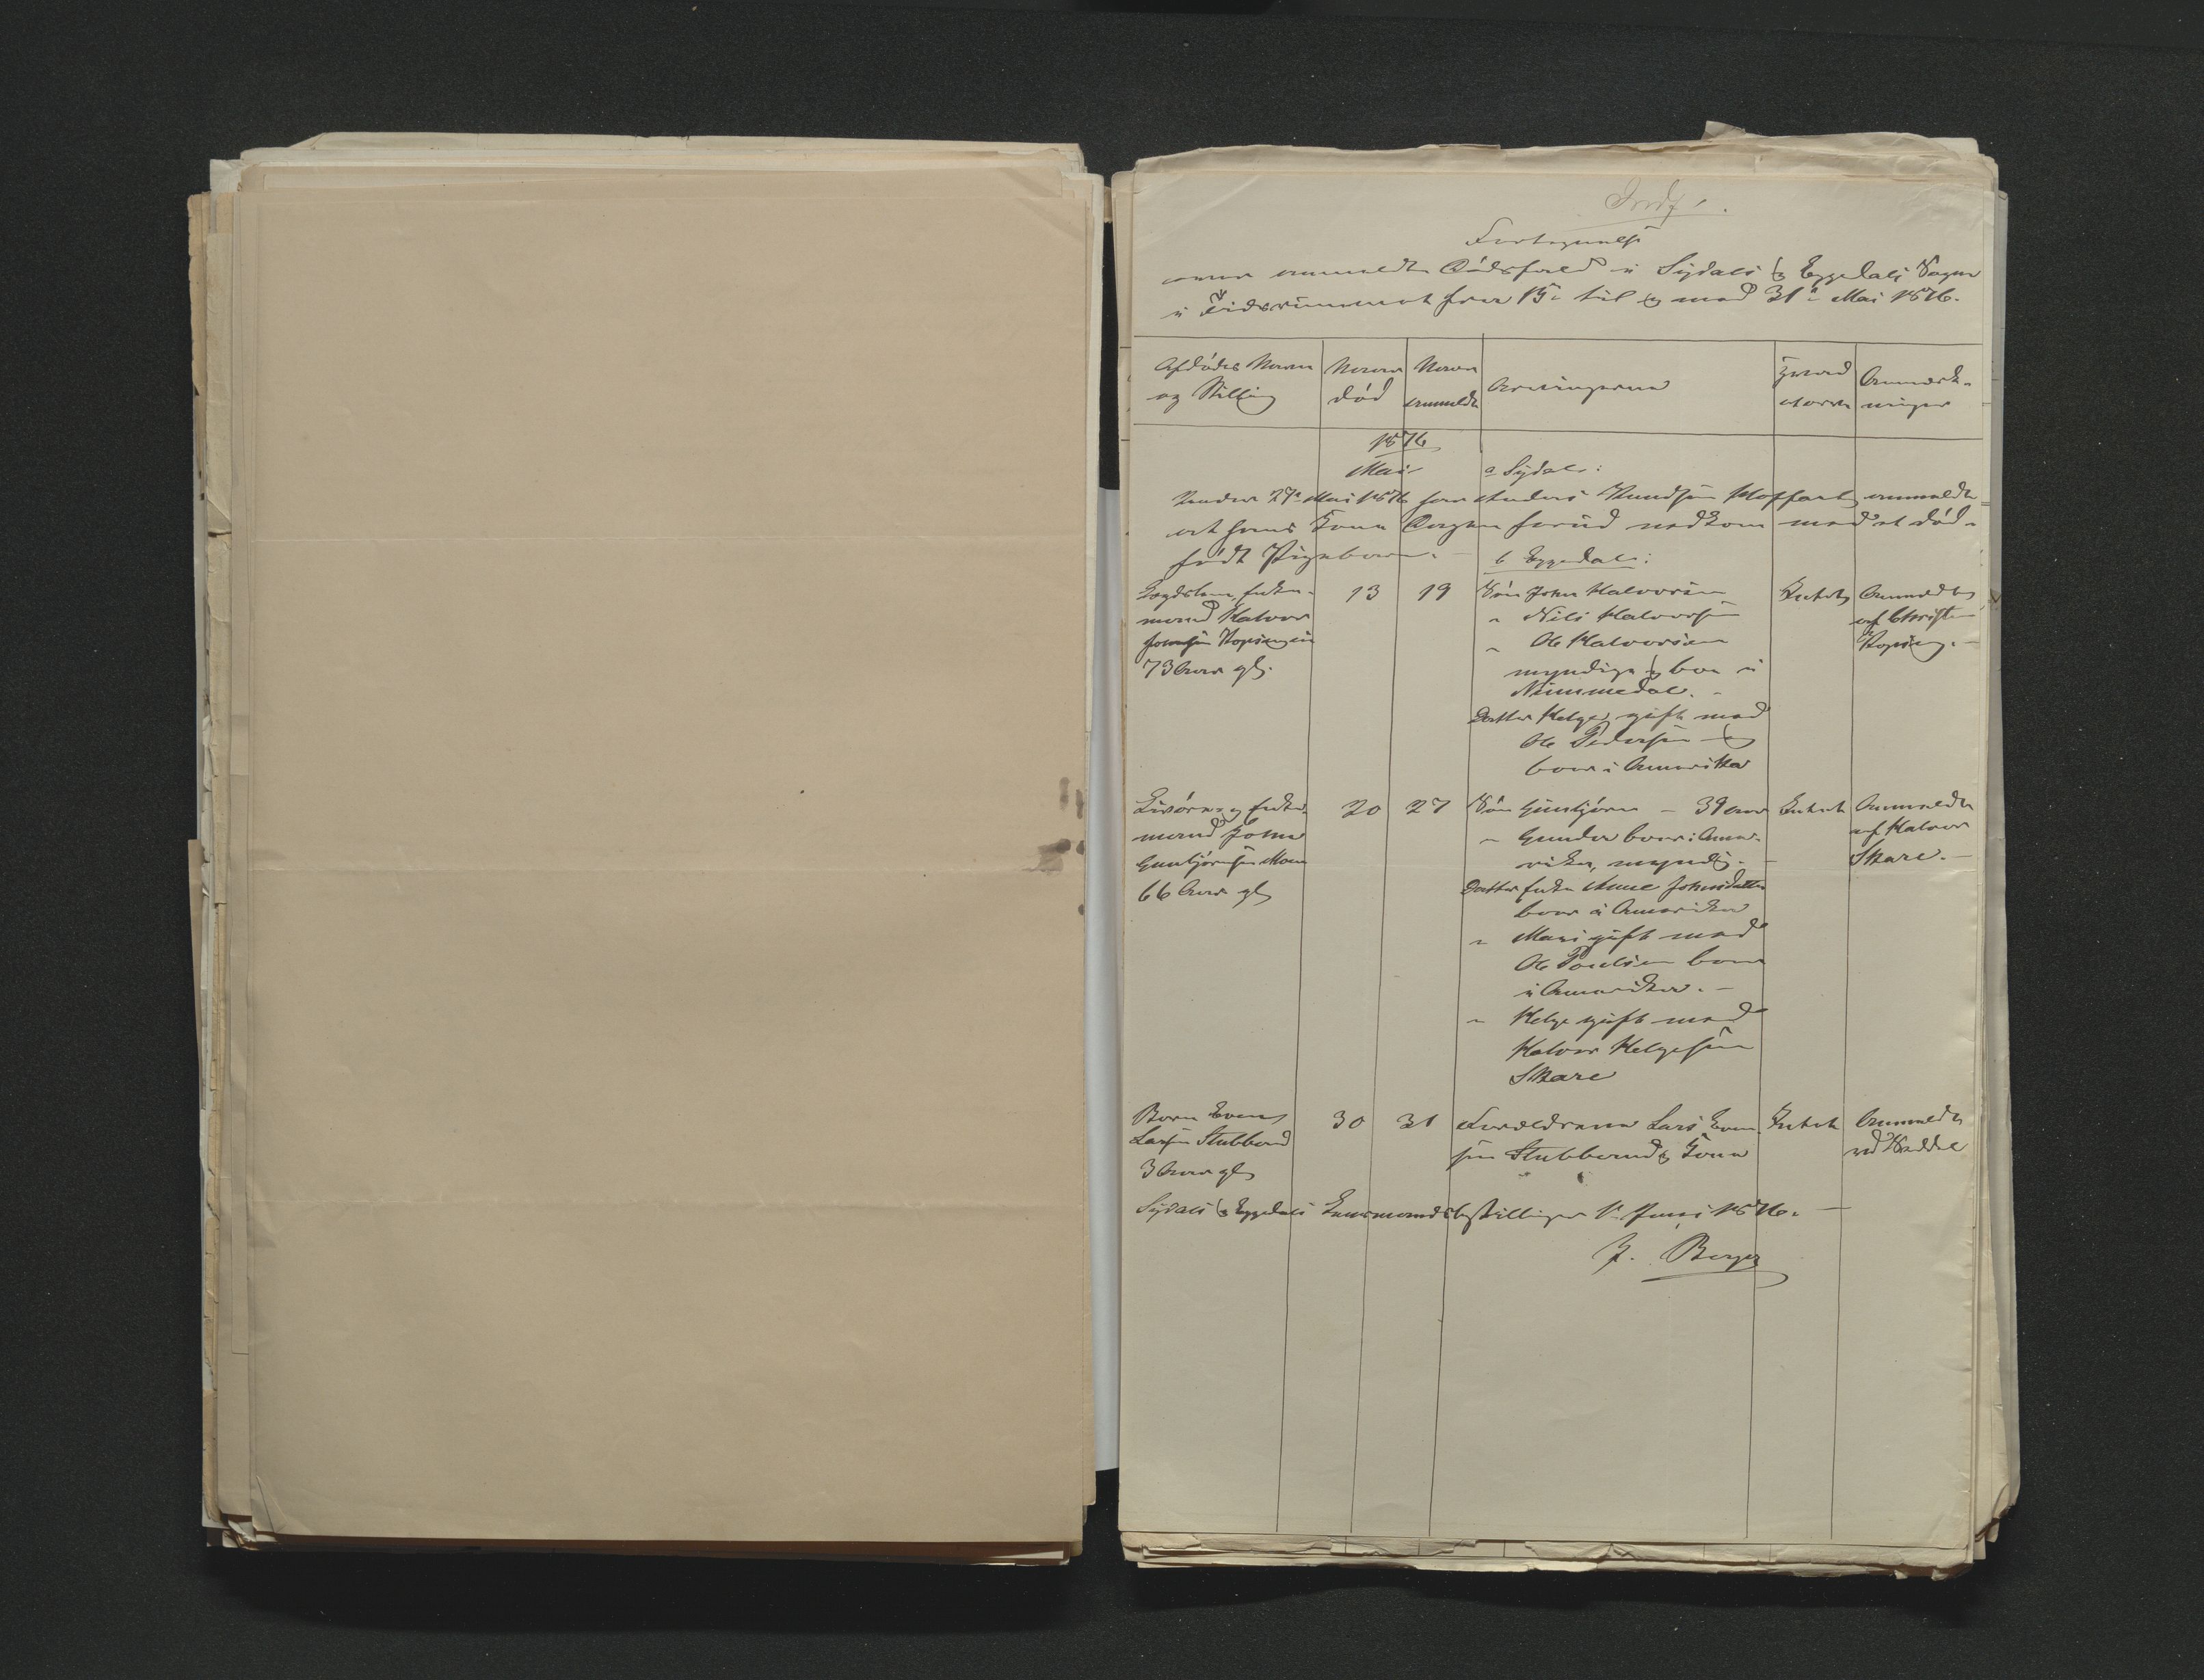 Indf 1.
Fortegnelse
over anmeldte Dødsfald i Sigdals & Eggedals Sogne
i Tidsrummet fra 15de til og med 31te Mai 1876.
Afdødes Navn
og Stilling
Naar
død
Naar
anmeldt
Arvingerne
Hvad
efterl.
Anmærk-
ninger
1876
Mai
a Sigdal:
Under 27de Mai 1876 har Anders Knudsen anmeldt
at hans Kone forud nedkom med et død-
født Pigebarn.
b Eggedal:
Lægdslem, Enke-
mand Halvor
Johnsen
73 Aar gl.
13
19
Søn John Halvorsen
" Nils Halvorsen
" Ole Halvorsen
myndige & bor i
Nummedal.
Datter Helge, gift med
Ole Pedersen &
bor i Amerika
Intet
Anmeldt
af Christen
Livøring Enke-
mand John
Gunbjørnsen Moen
66 Aar gl
20
27
Søn Gunbjørn - 39 aar
" Gunder bor i Ame-
rika, myndig.
Datter Enke Anne Johnsdatter
bor i Amerika
" Mari gift med
Ole Poulsen bor
i Amerika.
" Helge gift med
Halvor Helgesen
Skare
Intet
Anmeldt
af Halvor
Skare.
Barn Even
Larsen Stubberud
3 Aar gl
30
31
Forældrene Lars Even-
sen Stubberud & Kone
Intet
Anmeldt
ved
Sigdals & Eggedals Lensmandsbestillinger 1. Juni 1876.
J. Berger